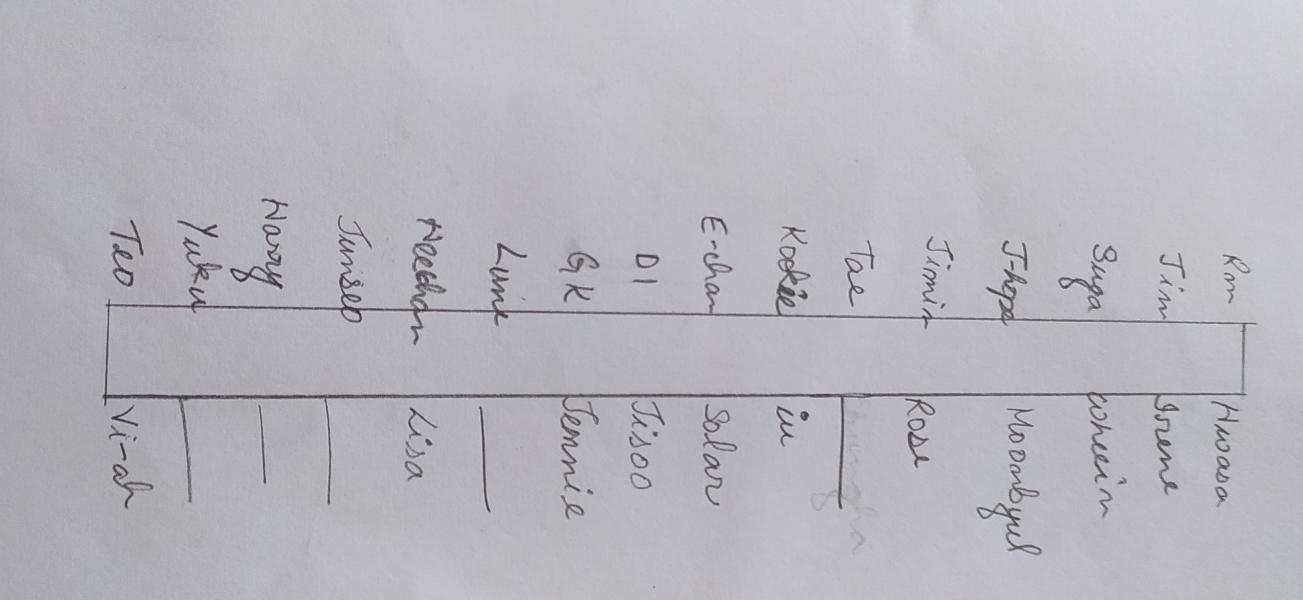 Rm Hwasa
Jin Irene
Suga wheein
J-hope Moonbyul
Jimin Rose
Tae ——
Kookie iu
E-chan Solar
D1 Jisoo
GK Jennie
Lune ——
Heechan Lisa
Junseo ——
Harry ——
Yuku ——
Teo Vi-ah